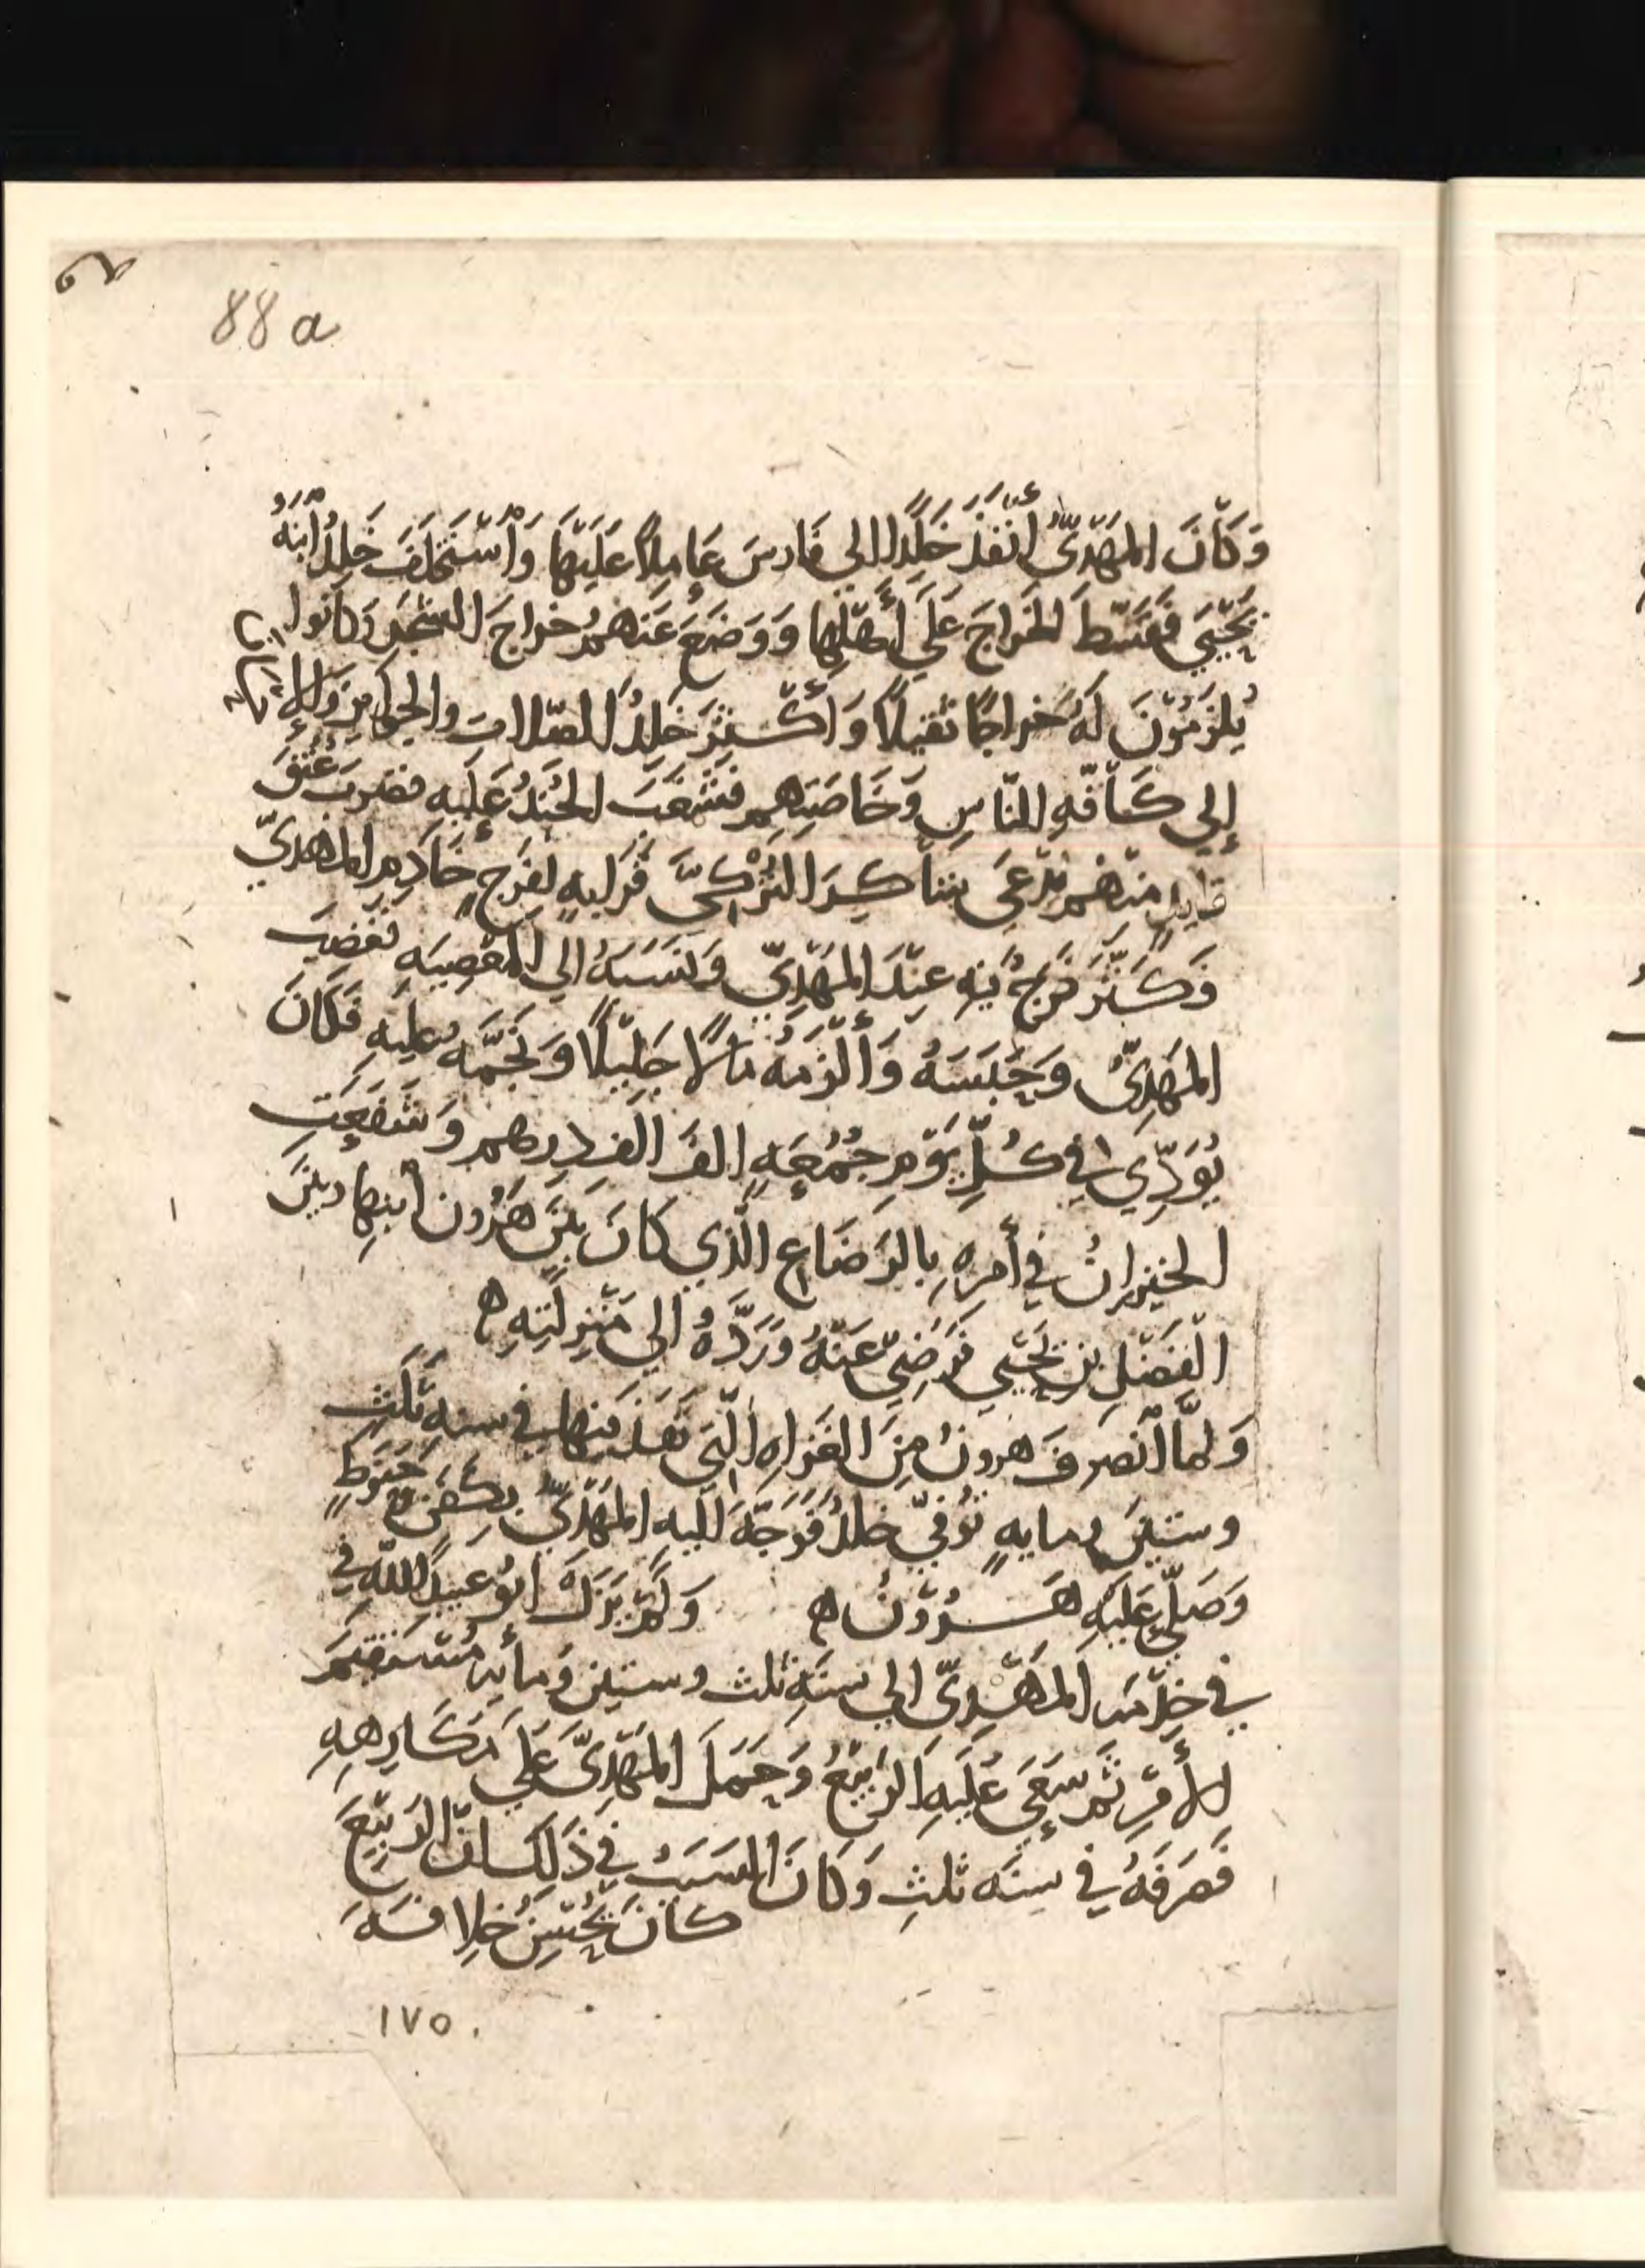 88 a
وَكَانَ المَهْدِيُّ أَنْفَذَ خَلِدًا الي فَارسَ عَامِلًا عَلَيْهَا وَاسْتَخْلَفَ خَلِدٌ ابْنَهُ
يَحْيَي فَقَسَّطَ الخَرَاجَ عَلَي أَهْلِهَا وَوَضَعَ عَنهُم خراجَ الشجَرِ وَكانُوا
يُلْزَمُوْنَ لَهُ خراجًا ثَقيلًا وَأَكْثَرَ خَلِدٌ الصّلاتِ والجَوايزَ
إلي كَافّهِ النّاسِ وَخَاصّتِهِم فشَغَبَ الجُنْدُ عَلَيهِ فضربَ عُنُقَ
قايدٍ منهُم يُدْعَي شاكِر التُّرْكيَّ قَرابهٍ لفَرَجٍ خَادِمِ المَهديّ
فَكَثَّرَ فَرَجٌ فيهِ عِنْدَ المَهْدِيّ وَنَسَبَهُ الي المَعْصِيَهِ فغضِبَ
المَهْدِيُّ وَحَبَسَهُ وَأَلْزَمَهُ مَالًا جَلِيْلًا وَنَجَّمَهُ عليهِ فَكَانَ
يُوَدِّي في كُلِّ يَوْمِ جُمُعَهٍ الفَ الفِ دِرهم وَشَفَعَتِ
الخيزرانُ في أمرِهِ بالرَضَاعِ الَّذِي كَانَ بَيْنَ هَرُون ابنِها وبينَ
الْفَضْلِ بن يَحْيي فَرَضِيَ عَنْهُ وَرَدَّهُ الي مَنْزِلَتِهِ ه
وَلمّا انْصَرفَ هرونُ مِنَ الغَزاهِ الَّتي نَفَذَ فيها في سنه ثَلَثٍ
وستينَ ومايهٍ تُوُفّيَ خلدٌ فَوَجَّهَ اليهِ المَهْدِيُّ بكَفَنٍ وَحَنُوطٍ
وَصَلّي عَلَيْهِ هَرُوْن ه وَلَمْ يَزَلْ ابُو عبيد اللهِ في
في خِدْمَه المَهْدِيّ الي سَنَهِ ثلث وستين وَمأيه مُسْتَقِيمَ
الأَمْرِ ثُمَ سَعَي عَلَيهِ الرَبِيْعُ وَحَمَلَ المَهْدِيَّ عَلي مَكَارِهِهِ
فَصَرَفَهُ في سِنَه ثلثٍ وَكَانَ السَبَبُ في ذَلكَ انّ الرَبيْعَ
كانَ يُحْسِنُ خِلافَتَهَ
١٧٥